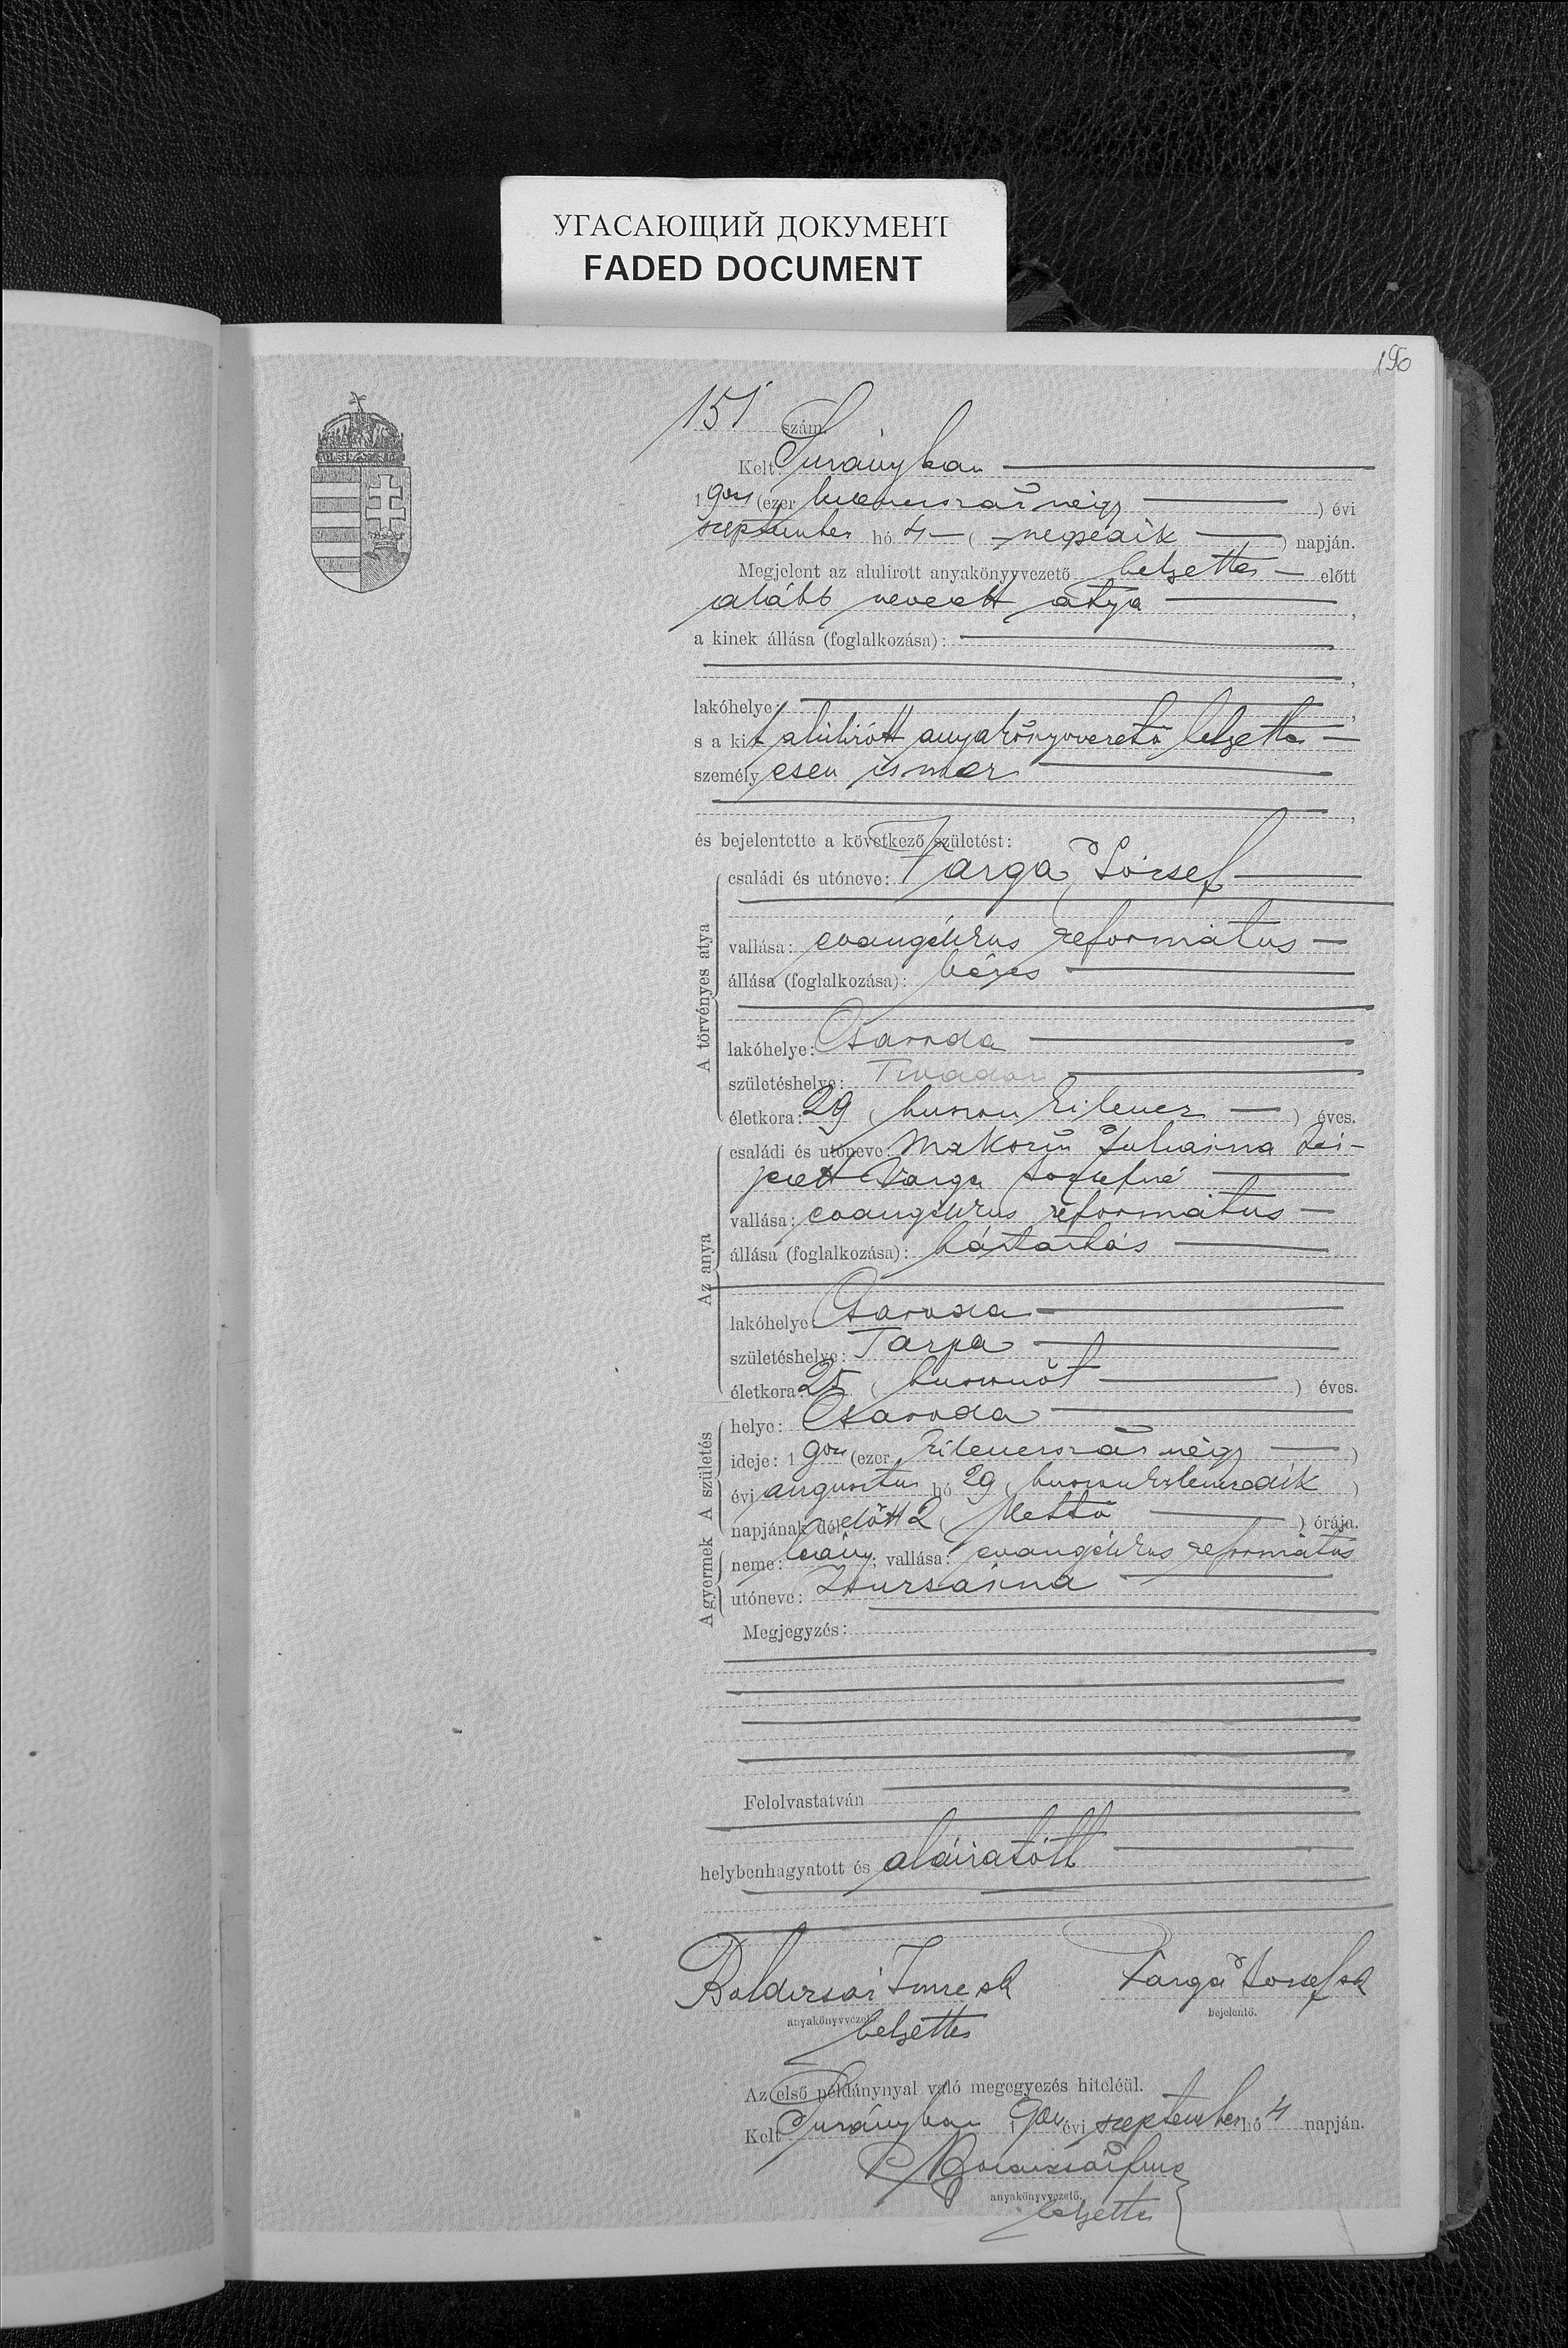 УГАСАЮЩИЙ ДОКУМЕНТ
FADED DOCUMENT
196
151 szám.
Kelt Surányban
1904 (ezer kilencszáz négy) évi
szeptember hó 4 (negyedik) napján.
Megjelent az alulirott anyakönyvvezető helyettes előtt
alább nevezett atya,
a kinek állása (foglalkozása):
lakóhelye:
s a kit alulirótt anyakönyvvezető helyettes
személyesen ismer
és bejelentette a következő születést:
A törvényes atya
családi és utóneve: Varga József
vallása: evangélikus református
állása (foglalkozása): béres
lakóhelye: Csaroda
születéshelye: Tivadar
életkora: 29 (huszon kilencz) éves.
Az anya
családi és utóneve: Juliánna
Varga Józsefné
vallása: evangélikus református
állása (foglalkozása): háztartás
lakóhelye: Csaroda
születéshelye: Tarpa
életkora: 25 (huszonöt) éves.
A születés
helye: Csaroda
ideje: 1904 (ezer kilenczszáz négy)
évi augusztus hó 29 (huszonkilenczedik)
napjának délelőtt 2 (kettő) órája.
A gyermek
neme: leány; vallása: evangélikus református
utóneve: Zsuzsánna
Megjegyzés:
Felolvastatván
helybenhagyatott és aláiratótt
Imre sk Varga József sk
anyakönyvvezető bejelentő.
helyettes
Az első példánynyal való megegyezés hiteléül.
Kelt Surányban 1904 évi szeptember hó 4 napján.
anyakönyvvezető.
helyettes